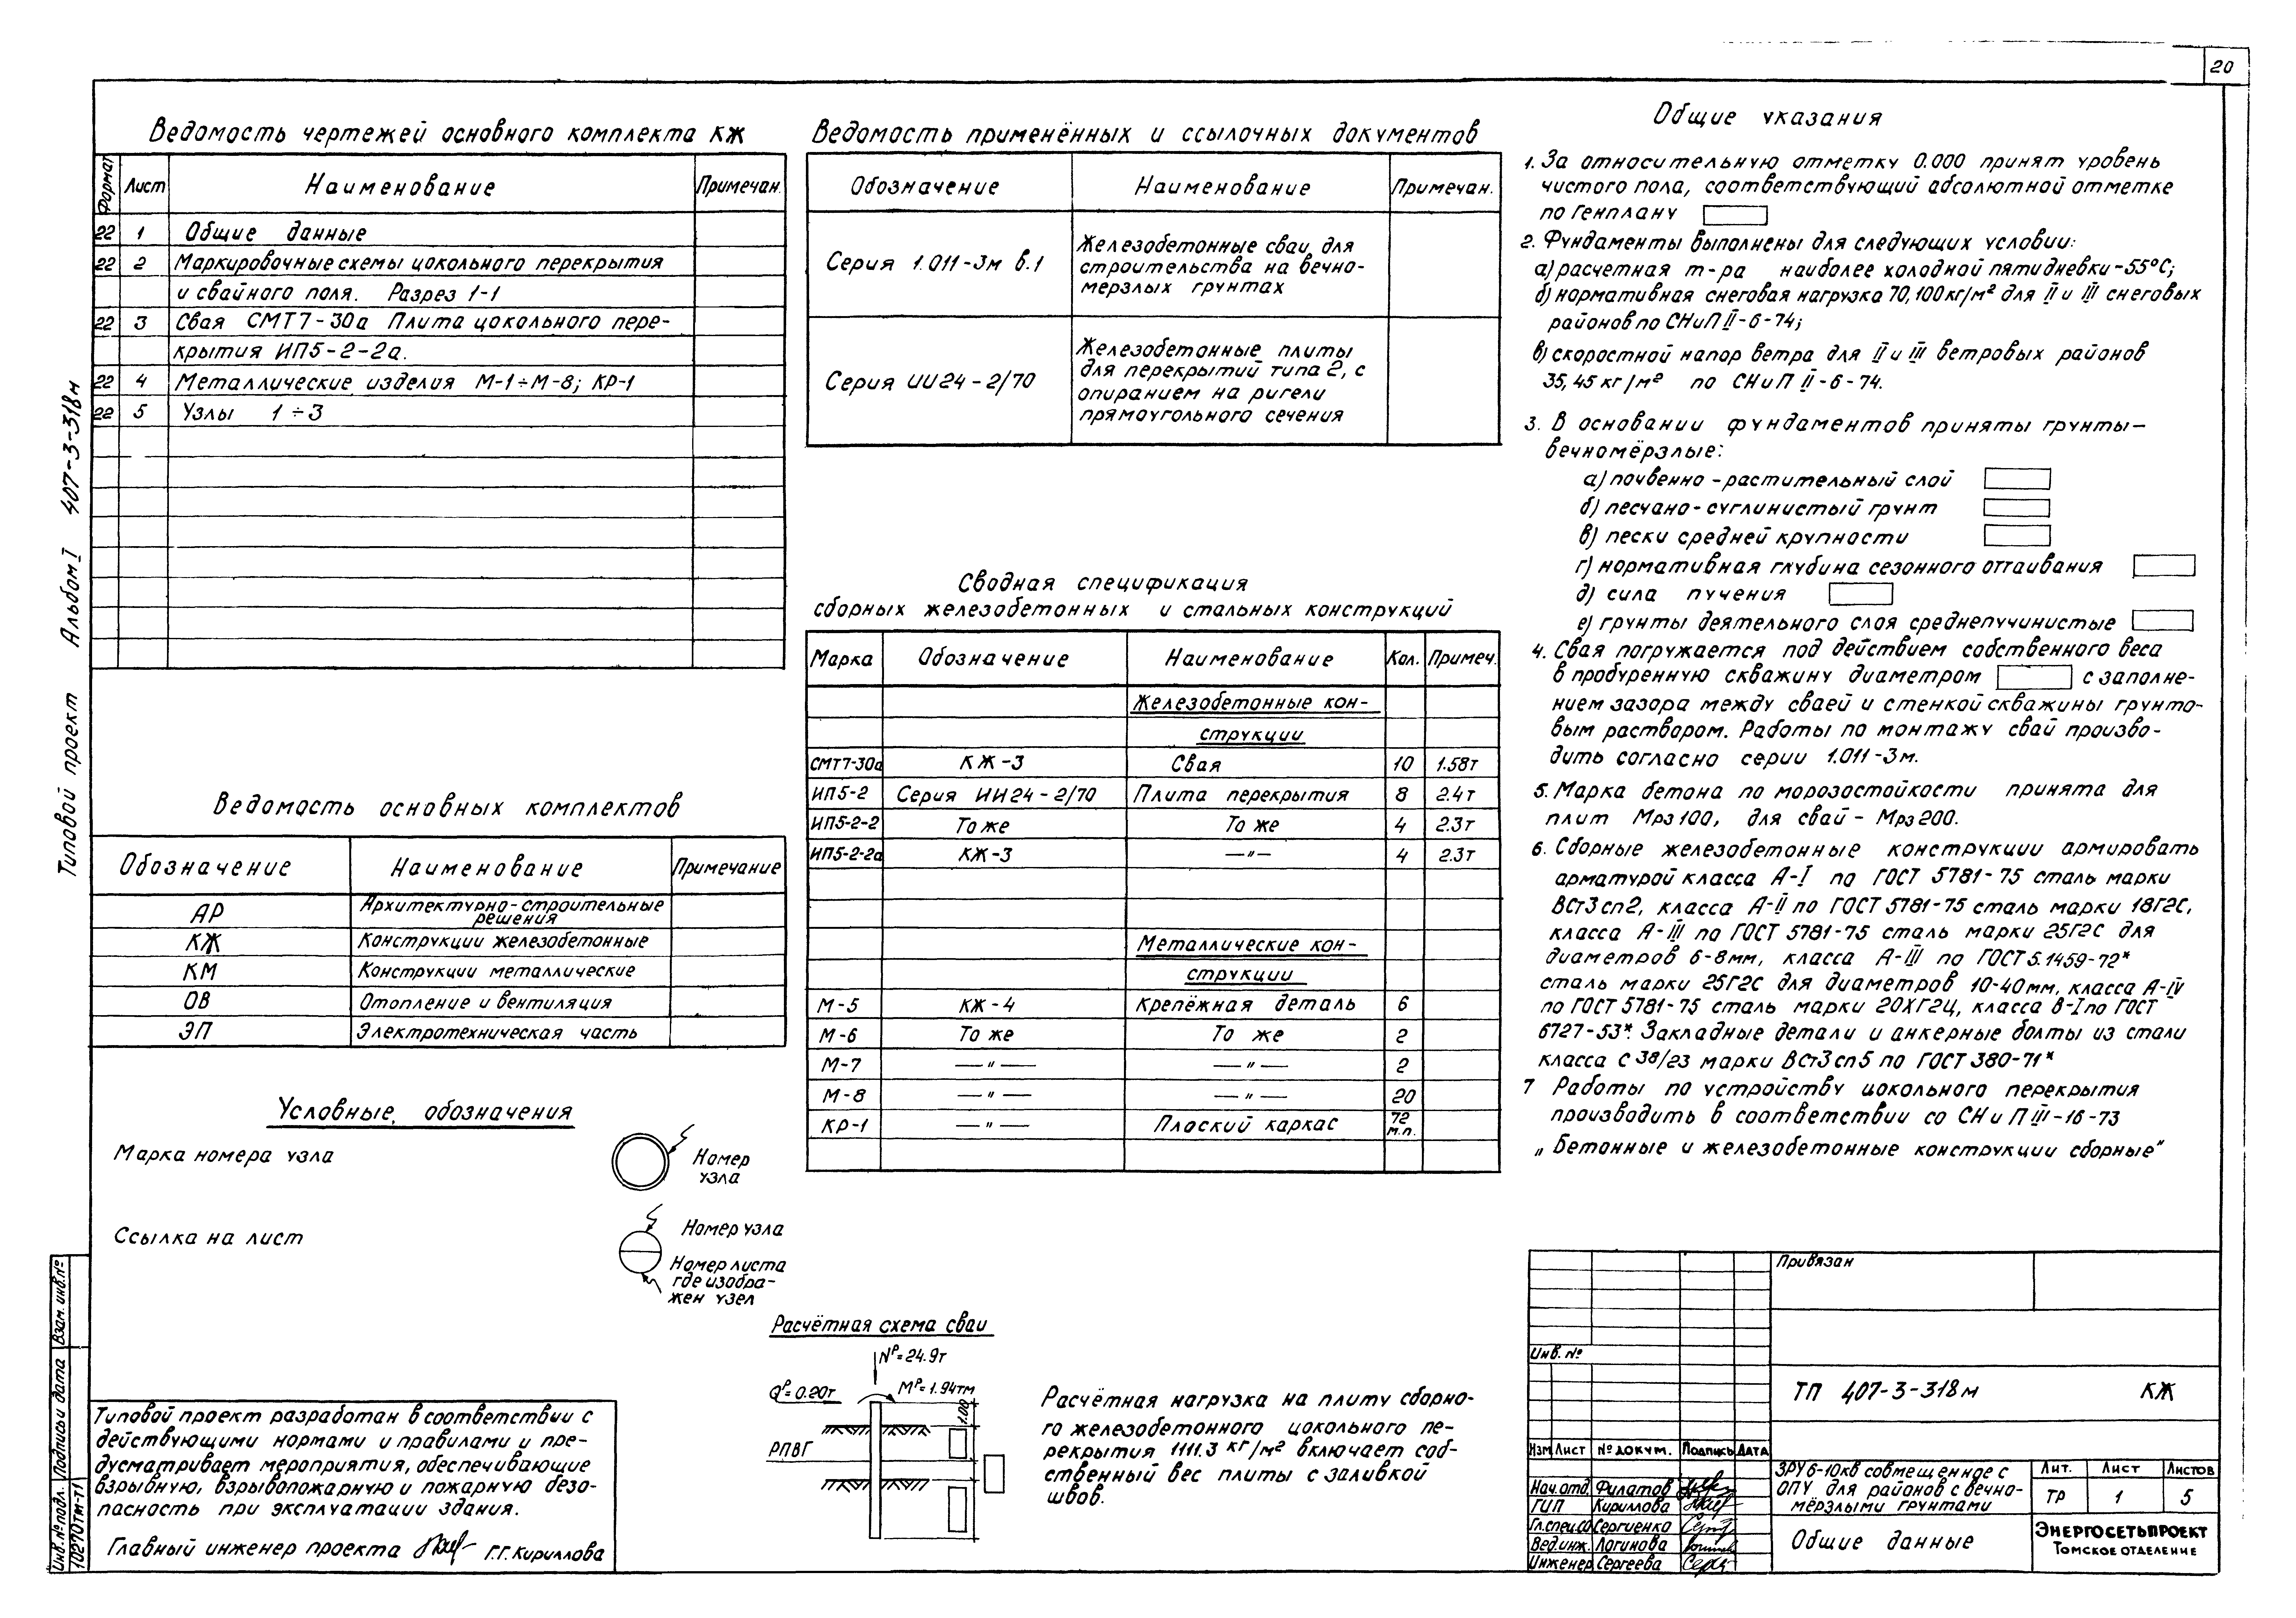 20
Ведомость чертежей основного комплекта КЖ
Формат Лист Наименование Примечан.
22 1 Общие данные
22 2 Маркировочные схемы цокольного перекрытия
и свайного поля. Разрез 1-1
22 3 Свая СМТ7-30а Плита цокольного пере-
крытия ИП5-2-2а.
22 4 Металлические изделия М-1÷М-8; КР-1
22 5 Узлы 1÷3
Ведомость основных комплектов
Обозначение Наименование Примечание
АР Архитектурно-строительные
решения
КЖ Конструкции железобетонные
КМ Конструкции металлические
ОВ Отопление и вентиляция
ЭП Электротехническая часть
Условные обозначения
Марка номера узла
Номер
узла
Ссылка на лист
Номер узла
Номер листа
где изобра-
жен узел
Типовой проект разработан в соответствии с
действующими нормами и правилами и пре-
дусматривает мероприятия, обеспечивающие
взрывную, взрывопожарную и пожарную безо-
пасность при эксплуатации здания.
Главный инженер проекта Г.Г. Кириллова
Ведомость применённых и ссылочных документов
Обозначение Наименование Примечан.
Серия 1.011-3м в.1
Железобетонные сваи для
строительства на вечно-
мерзлых грунтах
Серия ИИ24-2/70
Железобетонные плиты
для перекрытий типа 2, с
опиранием на ригели
прямоугольного сечения
Сводная спецификация
сборных железобетонных и стальных конструкций
Марка Обозначение Наименование Кол. Примеч.
Железобетонные кон-
струкции
СМТ7-30а КЖ-3 Свая 10 1.58т
ИП5-2 Серия ИИ24-2/70 Плита перекрытия 8 2.4т
ИП5-2-2 То же То же 4 2.3т
ИП5-2-2а КЖ-3 —"— 4 2.3т
Металлические кон-
струкции
М-5 КЖ-4 Крепёжная деталь 6
М-6 То же То же 2
М-7 —"— —"— 2
М-8 —"— —"— 20
КР-1 —"— Плоский каркас 72 м.п.
Расчётная схема сваи
Nᴾ=24.9т
Qᴾ=0.20т
Mᴾ=1.94тм
1.00
РПВГ
Расчётная нагрузка на плиту сборно-
го железобетонного цокольного пе-
рекрытия 1111.3 кг/м² включает соб-
ственный вес плиты с заливкой
швов.
Общие указания
1. За относительную отметку 0.000 принят уровень
чистого пола, соответствующий абсолютной отметке
по генплану
2. Фундаменты выполнены для следующих условии:
а) расчетная т-ра наиболее холодной пятидневки -55°С;
б) нормативная снеговая нагрузка 70, 100 кг/м² для II и III снеговых
районов по СНиП II-6-74;
в) скоростной напор ветра для II и III ветровых районов
35, 45 кг/м² по СНиП II-6-74.
3. В основании фундаментов приняты грунты-
вечномёрзлые:
а) почвенно-растительный слой
б) песчано-суглинистый грунт
в) пески средней крупности
г) нормативная глубина сезонного оттаивания
д) сила пучения
е) грунты деятельного слоя среднепучинистые
4. Свая погружается под действием собственного веса
в пробуренную скважину диаметром с заполне-
нием зазора между сваей и стенкой скважины грунто-
вым раствором. Работы по монтажу свай произво-
дить согласно серии 1.011-3м.
5. Марка бетона по морозостойкости принята для
плит Мрз 100, для свай - Мрз 200.
6. Сборные железобетонные конструкции армировать
арматурой класса А-I по ГОСТ 5781-75 сталь марки
ВСт3сп2, класса А-II по ГОСТ 5781-75 сталь марки 18Г2С,
класса А-III по ГОСТ 5781-75 сталь марки 25Г2С для
диаметров 6-8мм, класса А-III по ГОСТ 5.1459-72*
сталь марки 25Г2С для диаметров 10-40мм, класса А-IV
по ГОСТ 5781-75 сталь марки 20ХГ2Ц, класса В-I по ГОСТ
6727-53*. Закладные детали и анкерные болты из стали
класса С 38/23 марки ВСт3сп5 по ГОСТ 380-71*
7 Работы по устройству цокольного перекрытия
производить в соответствии со СНиП III-16-73
„Бетонные и железобетонные конструкции сборные"
Привязан
Инв. №
ТП 407-3-318м КЖ
Изм Лист № докум. Подпись Дата
Нач. отд. Филатов
ГИП Кириллова
Гл.спец.со Сергиенко
Вед.инж. Логинова
Инженер Сергеева
ЗРУ 6-10кв совмещенное с
ОПУ для районов с вечно-
мёрзлыми грунтами
Лит. Лист Листов
ТР 1 5
Общие данные
Энергосетьпроект
Томское отделение
Типовой проект Альбом I 407-3-318м
Инв. № подл. Подпись и дата Взам. инв. №
10270тм-т1